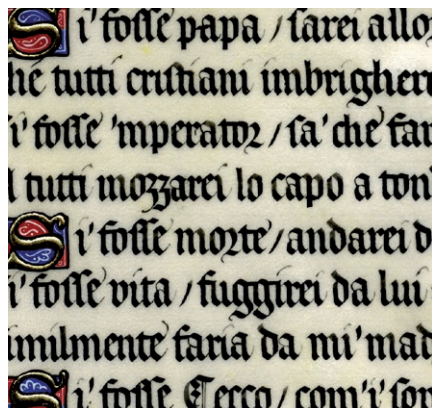 Si' fosse papa / sarei allo
he tutti cristiani imbrigher
i' fosse 'mperator / sa' che far
l tutti mozzarei lo capo a ton
Si' fosse morte / andarei d
i' fosse vita / fuggirei da lui
imilmente faria da mi' mad
Si' fosse Cecco / com'i' son